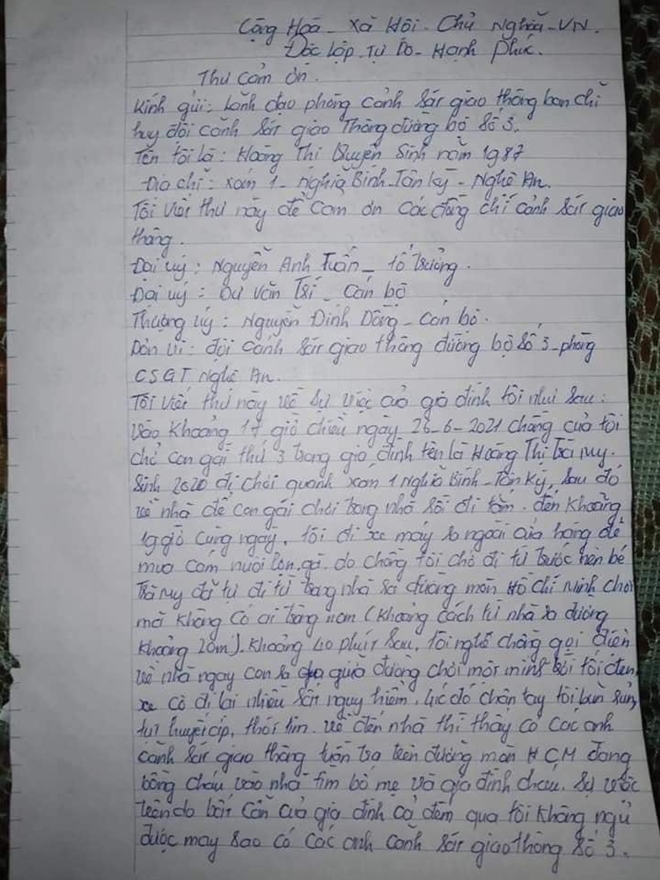 Cộng Hoà - Xã Hôi - Chủ Nghĩa - VN.
Độc Lập - Tự Do - Hạnh Phúc.
Thư cảm ơn.
Kính gửi: Lãnh đạo phòng cảnh sát giao thông ban chỉ
huy đội cảnh sát giao Thông đường bộ Số 3.
Tên tôi là: Hoàng Thị Quyên Sinh năm 1987
Địa chỉ: xóm 1 - Nghĩa Bình - Tân kỳ - Nghệ An.
Tôi viết thư này để cảm ơn các đồng chí cảnh sát giao
thông.
Đại uý: Nguyễn Anh Tuấn - tổ trưởng.
Đại uý: Dư Văn Trí - Cán bộ
Thượng úy: Nguyễn Đình Dông - Cán bộ.
Đơn vị: đội cảnh sát giao thông đường bộ số 3 - phòng
CSGT Nghệ An.
Tôi viết thư này về sự việc của gia đình tôi như sau:
vào Khoảng 17 giờ chiều ngày 26-6-2021 chồng của tôi
chở con gái thứ 3 trong gia đình tên là Hoàng Thị Trà My.
Sinh 2020 đi chơi quanh xóm 1 Nghĩa Bình - Tân Kỳ, sau đó
về nhà để con gái chơi trong nhà rồi đi tắm. đến khoảng
19 giờ cùng ngày, tôi đi xe máy ra ngoài cửa hàng để
mua cám nuôi lợn, gà. do chồng tôi chở đi từ trước nên bé
Trà My đã tự đi từ trong nhà ra đường mòn Hồ Chí Minh chơi
mà không có ai trông nom (khoảng cách từ nhà ra đường
khoảng 20m). Khoảng 40 phút sau, tôi nghe chồng gọi điện
về nhà ngay con ra giữa đường chơi một mình trời tối đen,
xe cộ đi lại nhiều rất nguy hiểm, lúc đó chân tay tôi bủn rủn,
tụt huyết áp, thót tim. về đến nhà thì thấy có các anh
cảnh sát giao thông tuần tra trên đường mòn HCM đang
bồng cháu vào nhà tìm bố mẹ và gia đình cháu. Sự việc
trên do bất cẩn của gia đình cả đêm qua tôi không ngủ
được may sao có các anh cảnh sát giao thông số 3.